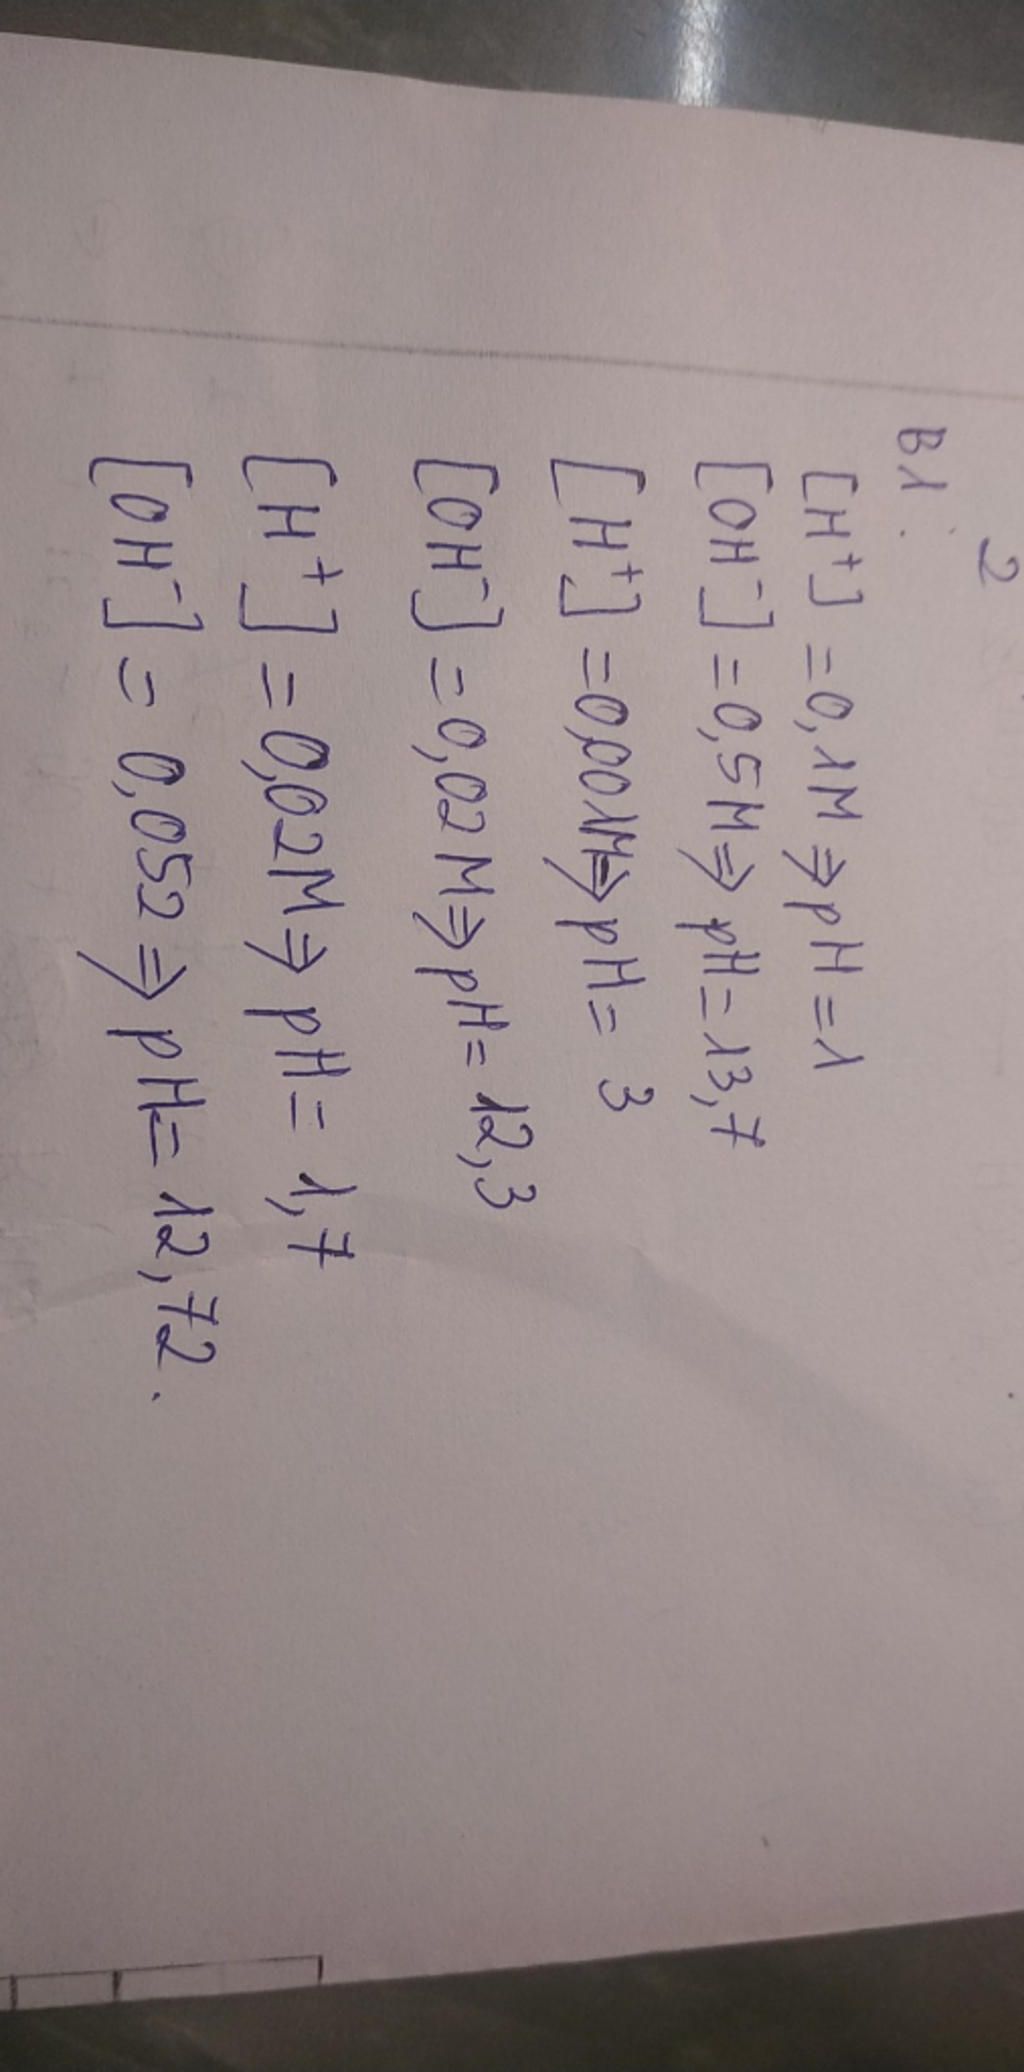 2
B1:
[H⁺] = 0,1M ⇒ pH = 1
[OH⁻] = 0,5M ⇒ pH = 13,7
[H⁺] = 0,001M ⇒ pH = 3
[OH⁻] = 0,02M ⇒ pH = 12,3
[H⁺] = 0,02M ⇒ pH = 1,7
[OH⁻] = 0,052 ⇒ pH = 12,72.